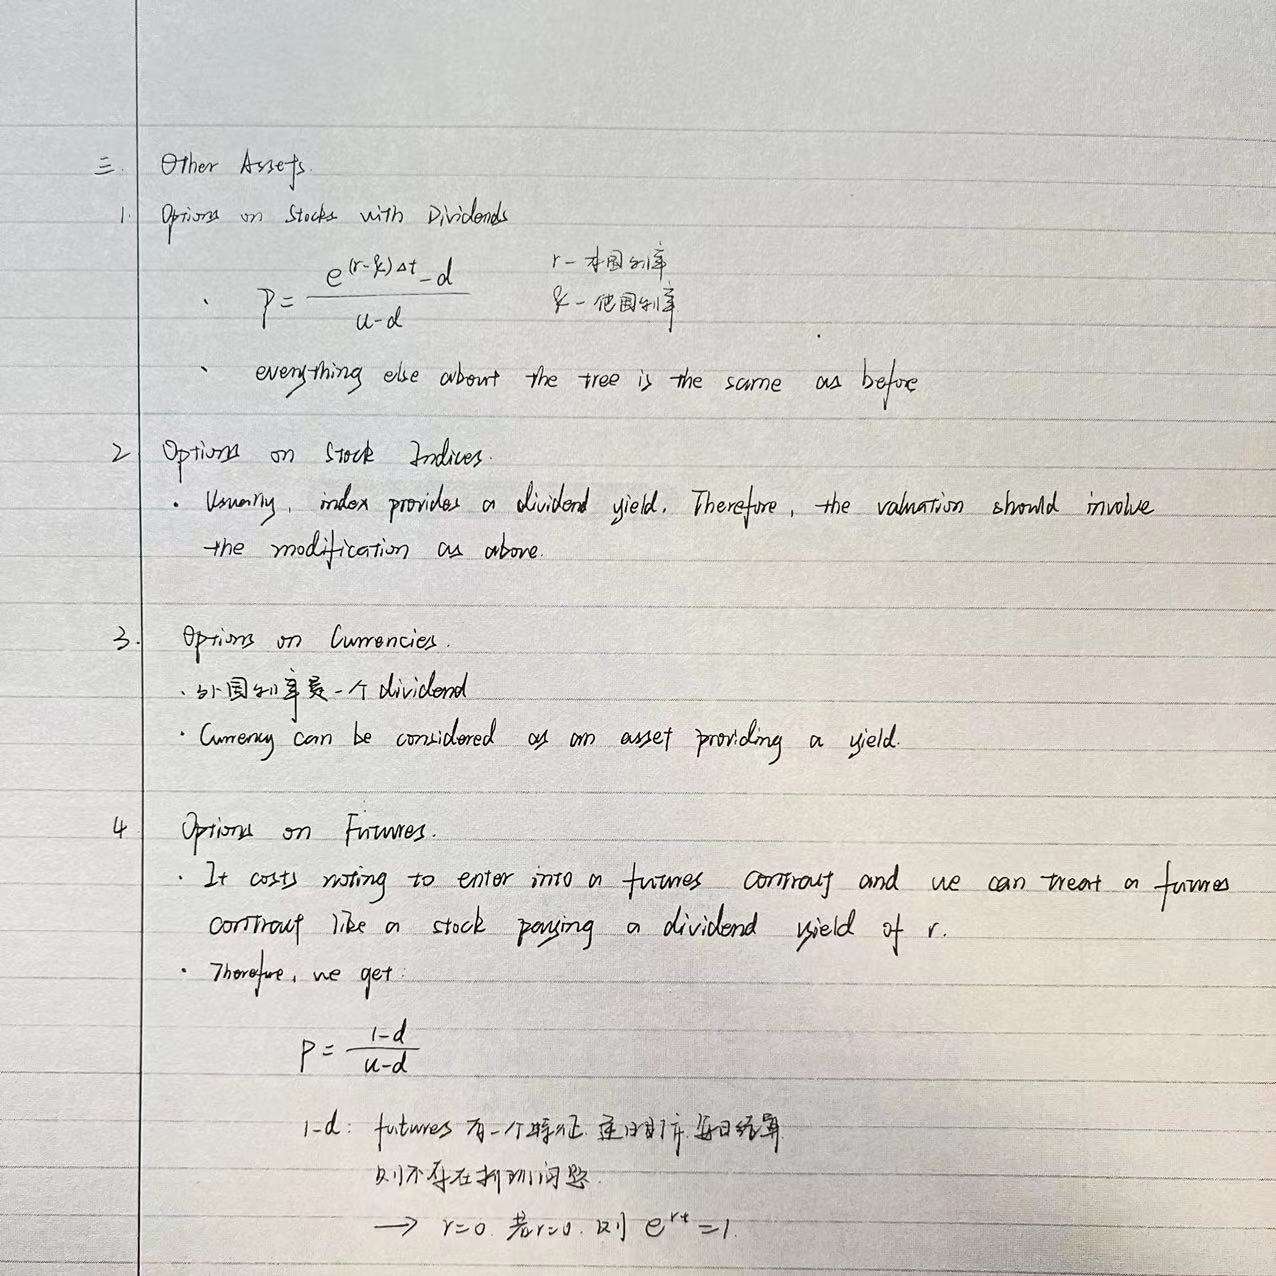 三. Other Assets.
1. Options on Stocks with Dividends
· P = \frac{e^{(r-q)Δt}-d}{u-d} r - 本国利率
q - 他国利率
· everything else about the tree is the same as before
2 Options on Stock Indices.
· Usually, index provides a dividend yield. Therefore, the valuation should involve
the modification as above.
3. Options on Currencies.
· 外国利率是一个 dividend
· Currency can be considered as an asset providing a yield.
4 Options on Futures.
· It costs noting to enter into a futures contract and we can treat a futures
contract like a stock paying a dividend yield of r.
· Therefore, we get:
P = \frac{1-d}{u-d}
1-d: futures 有一个特征 逐日盯市 每日结算
则不存在折现问题.
→ r=0. 若r=0. 则 e^{rt}=1.